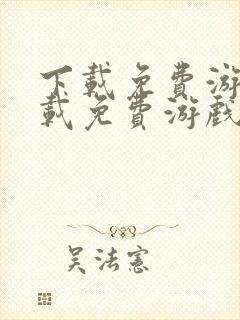 下载免费游
载免费游戏
吴法宪